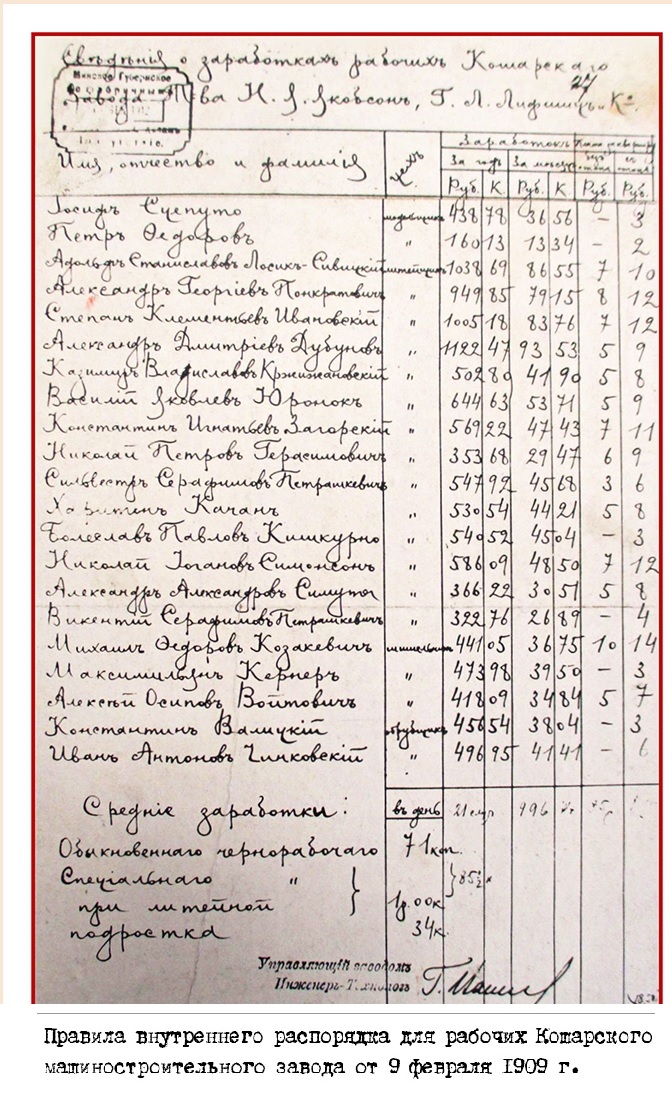 Свѣдѣнія о заработкахъ рабочихъ Кошарскаго
27
Завода Т-ва Н. Я. Якобсонъ, Г. Л. Лифшицъ и К°
Минское Губернское
Имя, отчество и фамилія Цехъ Заработокъ
За годъ За мѣсяцъ
Руб. К. Руб. К Руб. Руб.
Іосифъ Сцепуто модельщикъ 438 78 36 56 – 3
Петръ Ѳедоровъ " 160 13 13 34 – 2
Адольфъ Станиславовъ Лосикъ-Сивицкій литейщикъ 1038 69 86 55 7 10
Александръ Георгіевъ Понкратовичъ " 949 85 79 15 8 12
Степанъ Клементьевъ Ивановскій " 1005 18 83 76 7 12
Александръ Дмитріевъ Дубуновъ " 1122 47 93 53 5 9
Казимиръ Владиславовъ Кржижановскій " 502 80 41 90 5 8
Василій Яковлевъ Юронокъ " 644 63 53 71 5 9
Константинъ Игнатьевъ Загорскій " 569 22 47 43 7 11
Николай Петровъ Герасимовичъ " 353 68 29 47 6 9
Сильвестръ Серафимовъ Петрашкевичъ " 547 92 45 68 3 6
Харитонъ Качанъ " 530 54 44 21 5 8
Болеславъ Павловъ Кишкурно " 540 52 45 04 – 3
Николай Іогановъ Симонсонъ " 586 09 48 50 7 12
Александръ Александровъ Симута " 366 22 30 51 5 8
Викентій Серафимовъ Петрашкевичъ " 322 76 26 89 – 4
Михаилъ Ѳедоровъ Козакевичъ 441 05 36 75 10 14
Максимильянъ Кернеръ " 473 98 39 50 – 3
Алексѣй Осиповъ Войтовичъ " 418 09 34 84 5 7
Константинъ Валицкій обрубщикъ 456 54 38 04 – 3
Иванъ Антоновъ Чинковскій " 496 95 41 41 – 6
Средніе заработки: въ день
Обыкновеннаго чернорабочаго 71 коп.
Спеціальнаго " } } 85½ к
при литейной 1р. 00к
подростка 34к.
Управляющій заводомъ
Инженеръ-Технологъ
Правила внутреннего распорядка для рабочих Кошарского
машиностроительного завода от 9 февраля 1909 г.